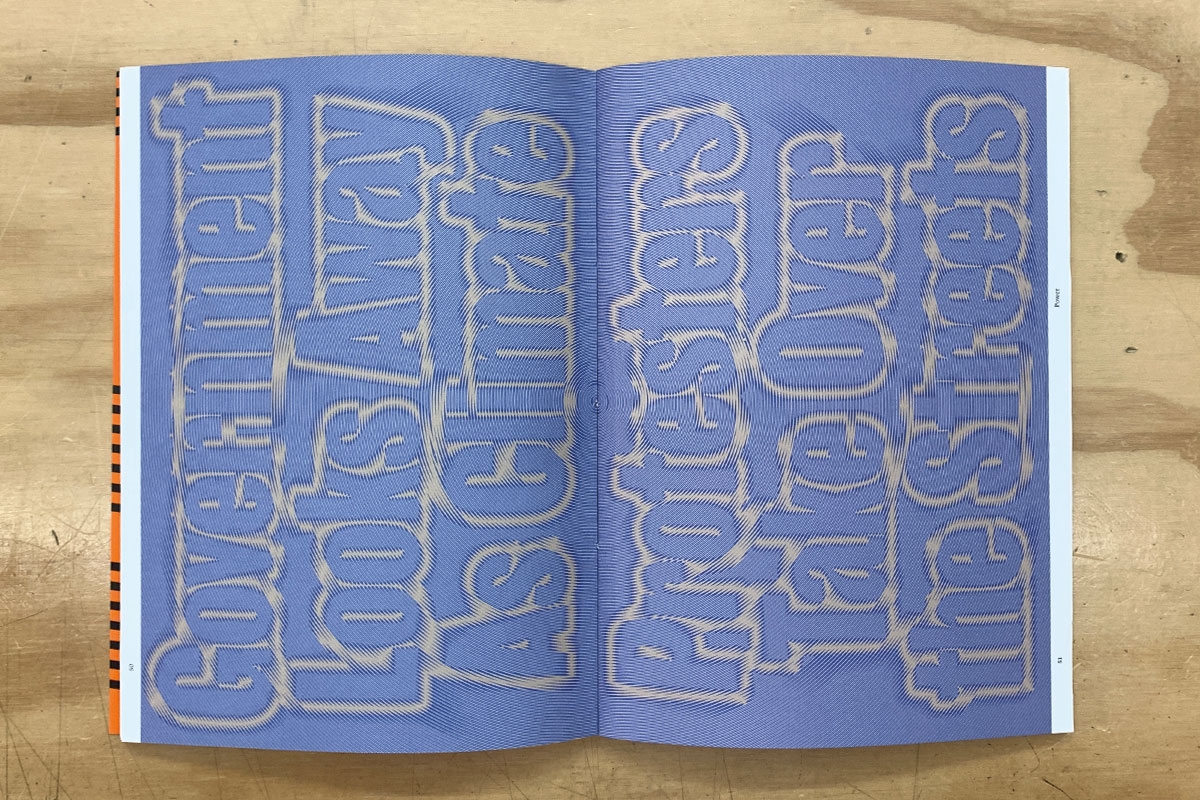 Government
Looks Away
As Climate
Protesters
Take Over
the Streets
50
Power
51